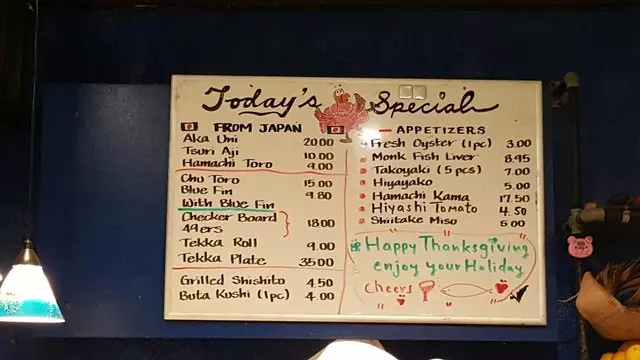 Today's Special
FROM JAPAN
Aka Uni 20.00
Tsuri Aji 10.00
Hamachi Toro 9.00
Chu Toro 15.00
Blue Fin 9.80
With Blue Fin
Checker Board
49ers 18.00
Tekka Roll 9.00
Tekka Plate 35.00
Grilled Shishito 4.50
Buta Kushi (1pc) 4.00
APPETIZERS
Fresh Oyster (1pc) 3.00
Monk Fish Liver 8.95
Takoyaki (5pcs) 7.00
Hiyayako 5.00
Hamachi Kama 17.50
Hiyashi Tomato 4.50
Shiitake Miso 5.00
Happy Thanksgiving
enjoy your Holiday
Cheers